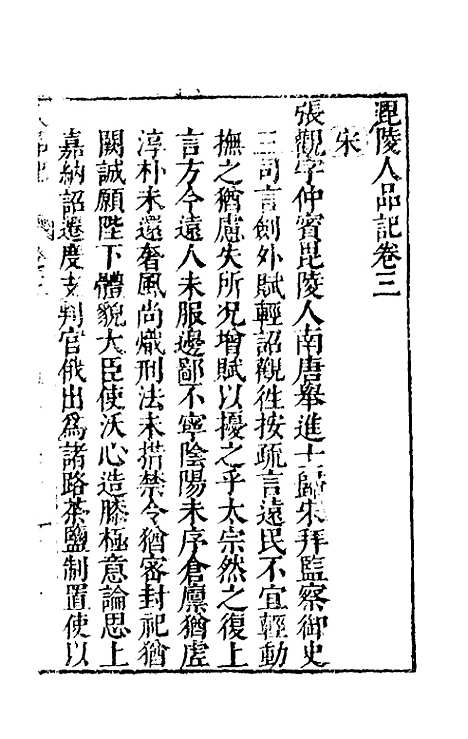 毘陵人品記卷三
宋
張觀字仲賓毘陵人南唐舉進士歸宋拜監察御史
三司言劍外賦輕詔觀徃按疏言遠民不宜輕動
撫之猶慮失所況增賦以擾之乎太宗然之復上
言方今遠人未服邊鄙不寧陰陽未序倉廪猶虗
淳朴未還奢風尚熾刑法未措禁令猶密封祀猶
闕誠願陛下體貌大臣使沃心造膝極意論思上
嘉納詔遷度支判官俄出爲諸路茶鹽制置使以